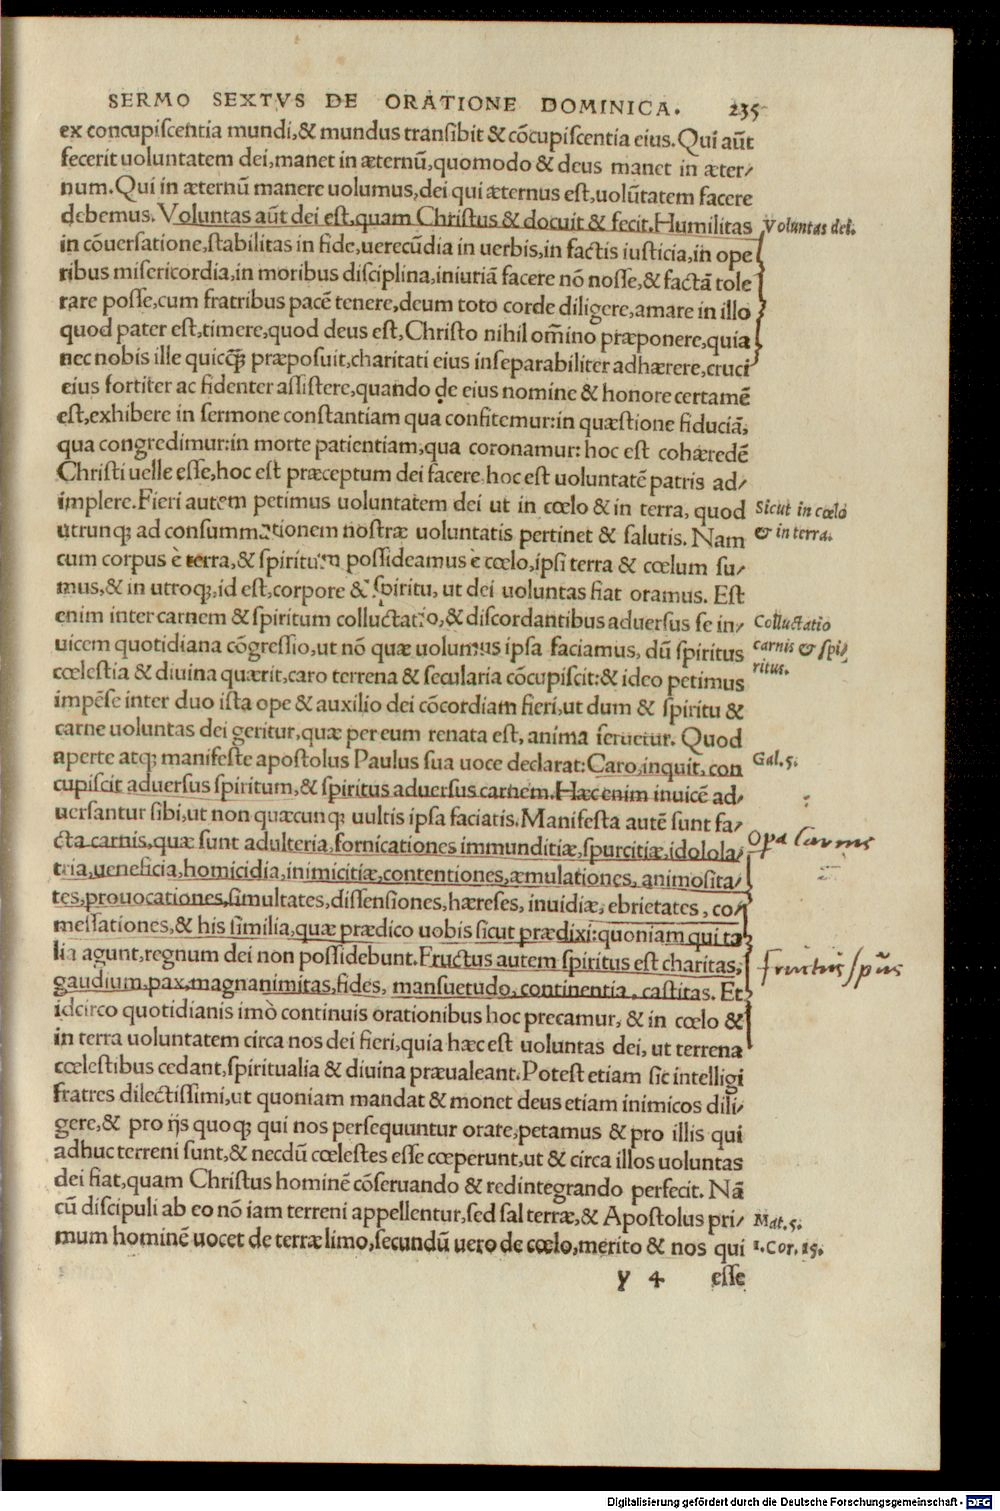 SERMO SEXTVS DE ORATIONE DOMINICA. 235
ex concupiscentia mundi,& mundus transibit & cõcupiscentia eius. Qui aũt
fecerit uoluntatem dei, manet in æternũ, quomodo & deus manet in æter/
num. Qui in æternũ manere uolumus, dei qui æternus est, uolũtatem facere
debemus. Voluntas aũt dei est, quam Christus & docuit & fecit. Humilitas
Voluntas dei.
in cõuersatione, stabilitas in fide, uerecũdia in uerbis, in factis iusticia, in ope
ribus misericordia, in moribus disciplina, iniuriã facere nõ nosse, & factã tole
rare posse, cum fratribus pacẽ tenere, deum toto corde diligere, amare in illo
quod pater est, timere, quod deus est, Christo nihil om̃ino præponere, quia
nec nobis ille quicq̃ præposuit, charitati eius inseparabiliter adhærere, cruci
eius fortiter ac fidenter assistere, quando de eius nomine & honore certamẽ
est, exhibere in sermone constantiam qua confitemur: in quæstione fiduciã,
qua congredimur: in morte patientiam, qua coronamur: hoc est cohæredẽ
Christi uelle esse, hoc est præceptum dei facere. hoc est uoluntatẽ patris ad/
implere. Fieri autem petimus uoluntatem dei ut in cœlo & in terra, quod
Sicut in cœlo
utrunq; ad consummationem nostræ uoluntatis pertinet & salutis. Nam
& in terra.
cum corpus è terra, & spiritum possideamus è cœlo, ipsi terra & cœlum su/
mus, & in utroq;, id est, corpore & spiritu, ut dei uoluntas fiat oramus. Est
enim inter carnem & spiritum colluctatio, & discordantibus aduersus se in/
Colluctatio
uicem quotidiana cõgressio, ut nõ quæ uolumus ipsa faciamus, dũ spiritus
carnis & spi/
cœlestia & diuina quærit, caro terrena & secularia cõcupiscit: & ideo petimus
ritus.
impẽse inter duo ista ope & auxilio dei cõcordiam fieri, ut dum & spiritu &
carne uoluntas dei geritur, quæ per eum renata est, anima seruetur. Quod
aperte atq; manifeste apostolus Paulus sua uoce declarat: Caro, inquit, con
Gal. 5.
cupiscit aduersus spiritum, & spiritus aduersus carnem. Hæc enim inuicẽ ad/
uersantur sibi, ut non quæcunq; uultis ipsa faciatis. Manifesta autẽ sunt fa/
cta carnis, quæ sunt adulteria, fornicationes immunditiæ, spurcitiæ, idolola/
Opa Carnis
tria, ueneficia, homicidia, inimicitiæ, contentiones, æmulationes, animosita/
tes, prouocationes, simultates, dissensiones, hæreses, inuidiæ, ebrietates, co/
messationes, & his similia, quæ prædico uobis sicut prædixi: quoniam qui ta/
lia agunt, regnum dei non possidebunt. Fructus autem spiritus est charitas,
fructus spũs
gaudium, pax, magnanimitas, fides, mansuetudo, continentia, castitas. Et
idcirco quotidianis imò continuis orationibus hoc precamur, & in cœlo &
in terra uoluntatem circa nos dei fieri, quia hæc est uoluntas dei, ut terrena
cœlestibus cedant, spiritualia & diuina præualeant. Potest etiam sic intelligi
fratres dilectissimi, ut quoniam mandat & monet deus etiam inimicos dili/
gere, & pro ijs quoq; qui nos persequuntur orare, petamus & pro illis qui
adhuc terreni sunt, & necdũ cœlestes esse cœperunt, ut & circa illos uoluntas
dei fiat, quam Christus hominẽ cõseruando & redintegrando perfecit. Nã
cũ discipuli ab eo nõ iam terreni appellentur, sed sal terræ, & Apostolus pri/
Mat. 5.
mum hominẽ uocet de terræ limo, secundũ uero de cœlo, merito & nos qui
1. Cor. 15.
y 4 esse
Digitalisierung gefördert durch die Deutsche Forschungsgemeinschaft - DFG